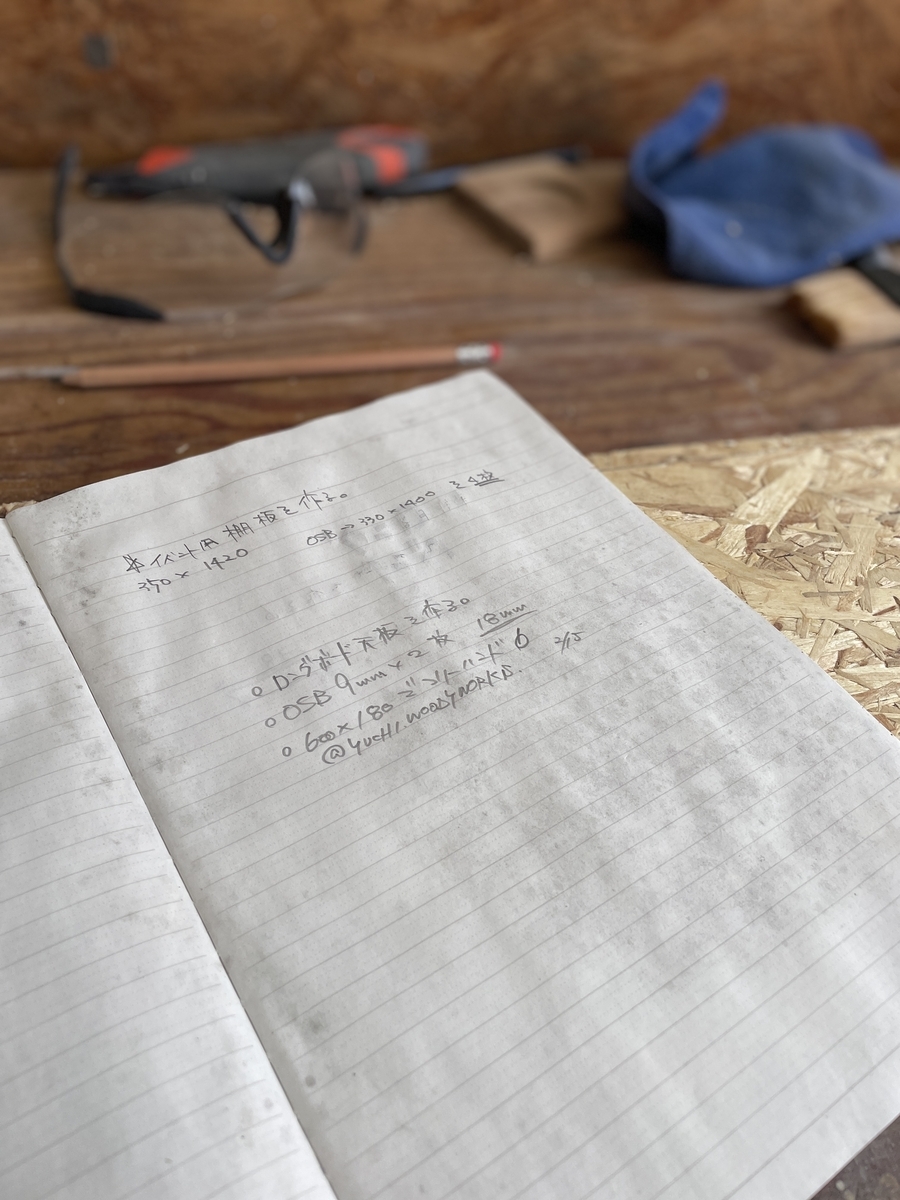 ※イベント用棚板を作る。
350×1420 OSB→330×1400 を4枚
○ロングボード天板を作る。
○OSB 9mm×2枚 18mm
○600×180 2/15
@YUCHI.WOODYWORKS.